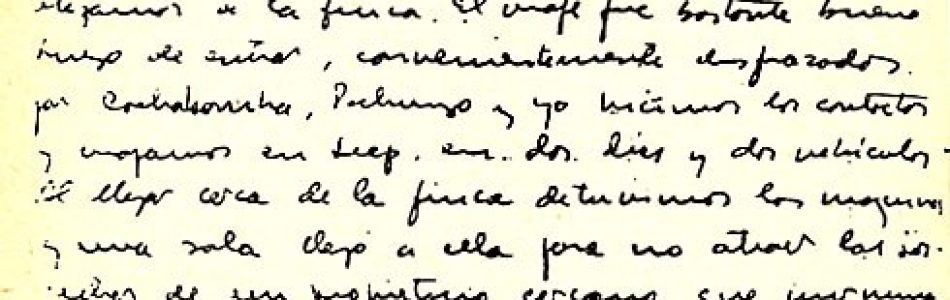 llegamos a la finca. El viaje fue bastante bueno
luego de entrar, convenientemente disfrazados
por Cochabamba, Pachungo y yo hicimos los contactos
y viajamos en Jeep, en dos días y dos vehículos -
Al llegar cerca de la finca detuvimos las máquinas
y una sola llegó a ella para no atraer las sos-
pechas de un propietario cercano, que murmura